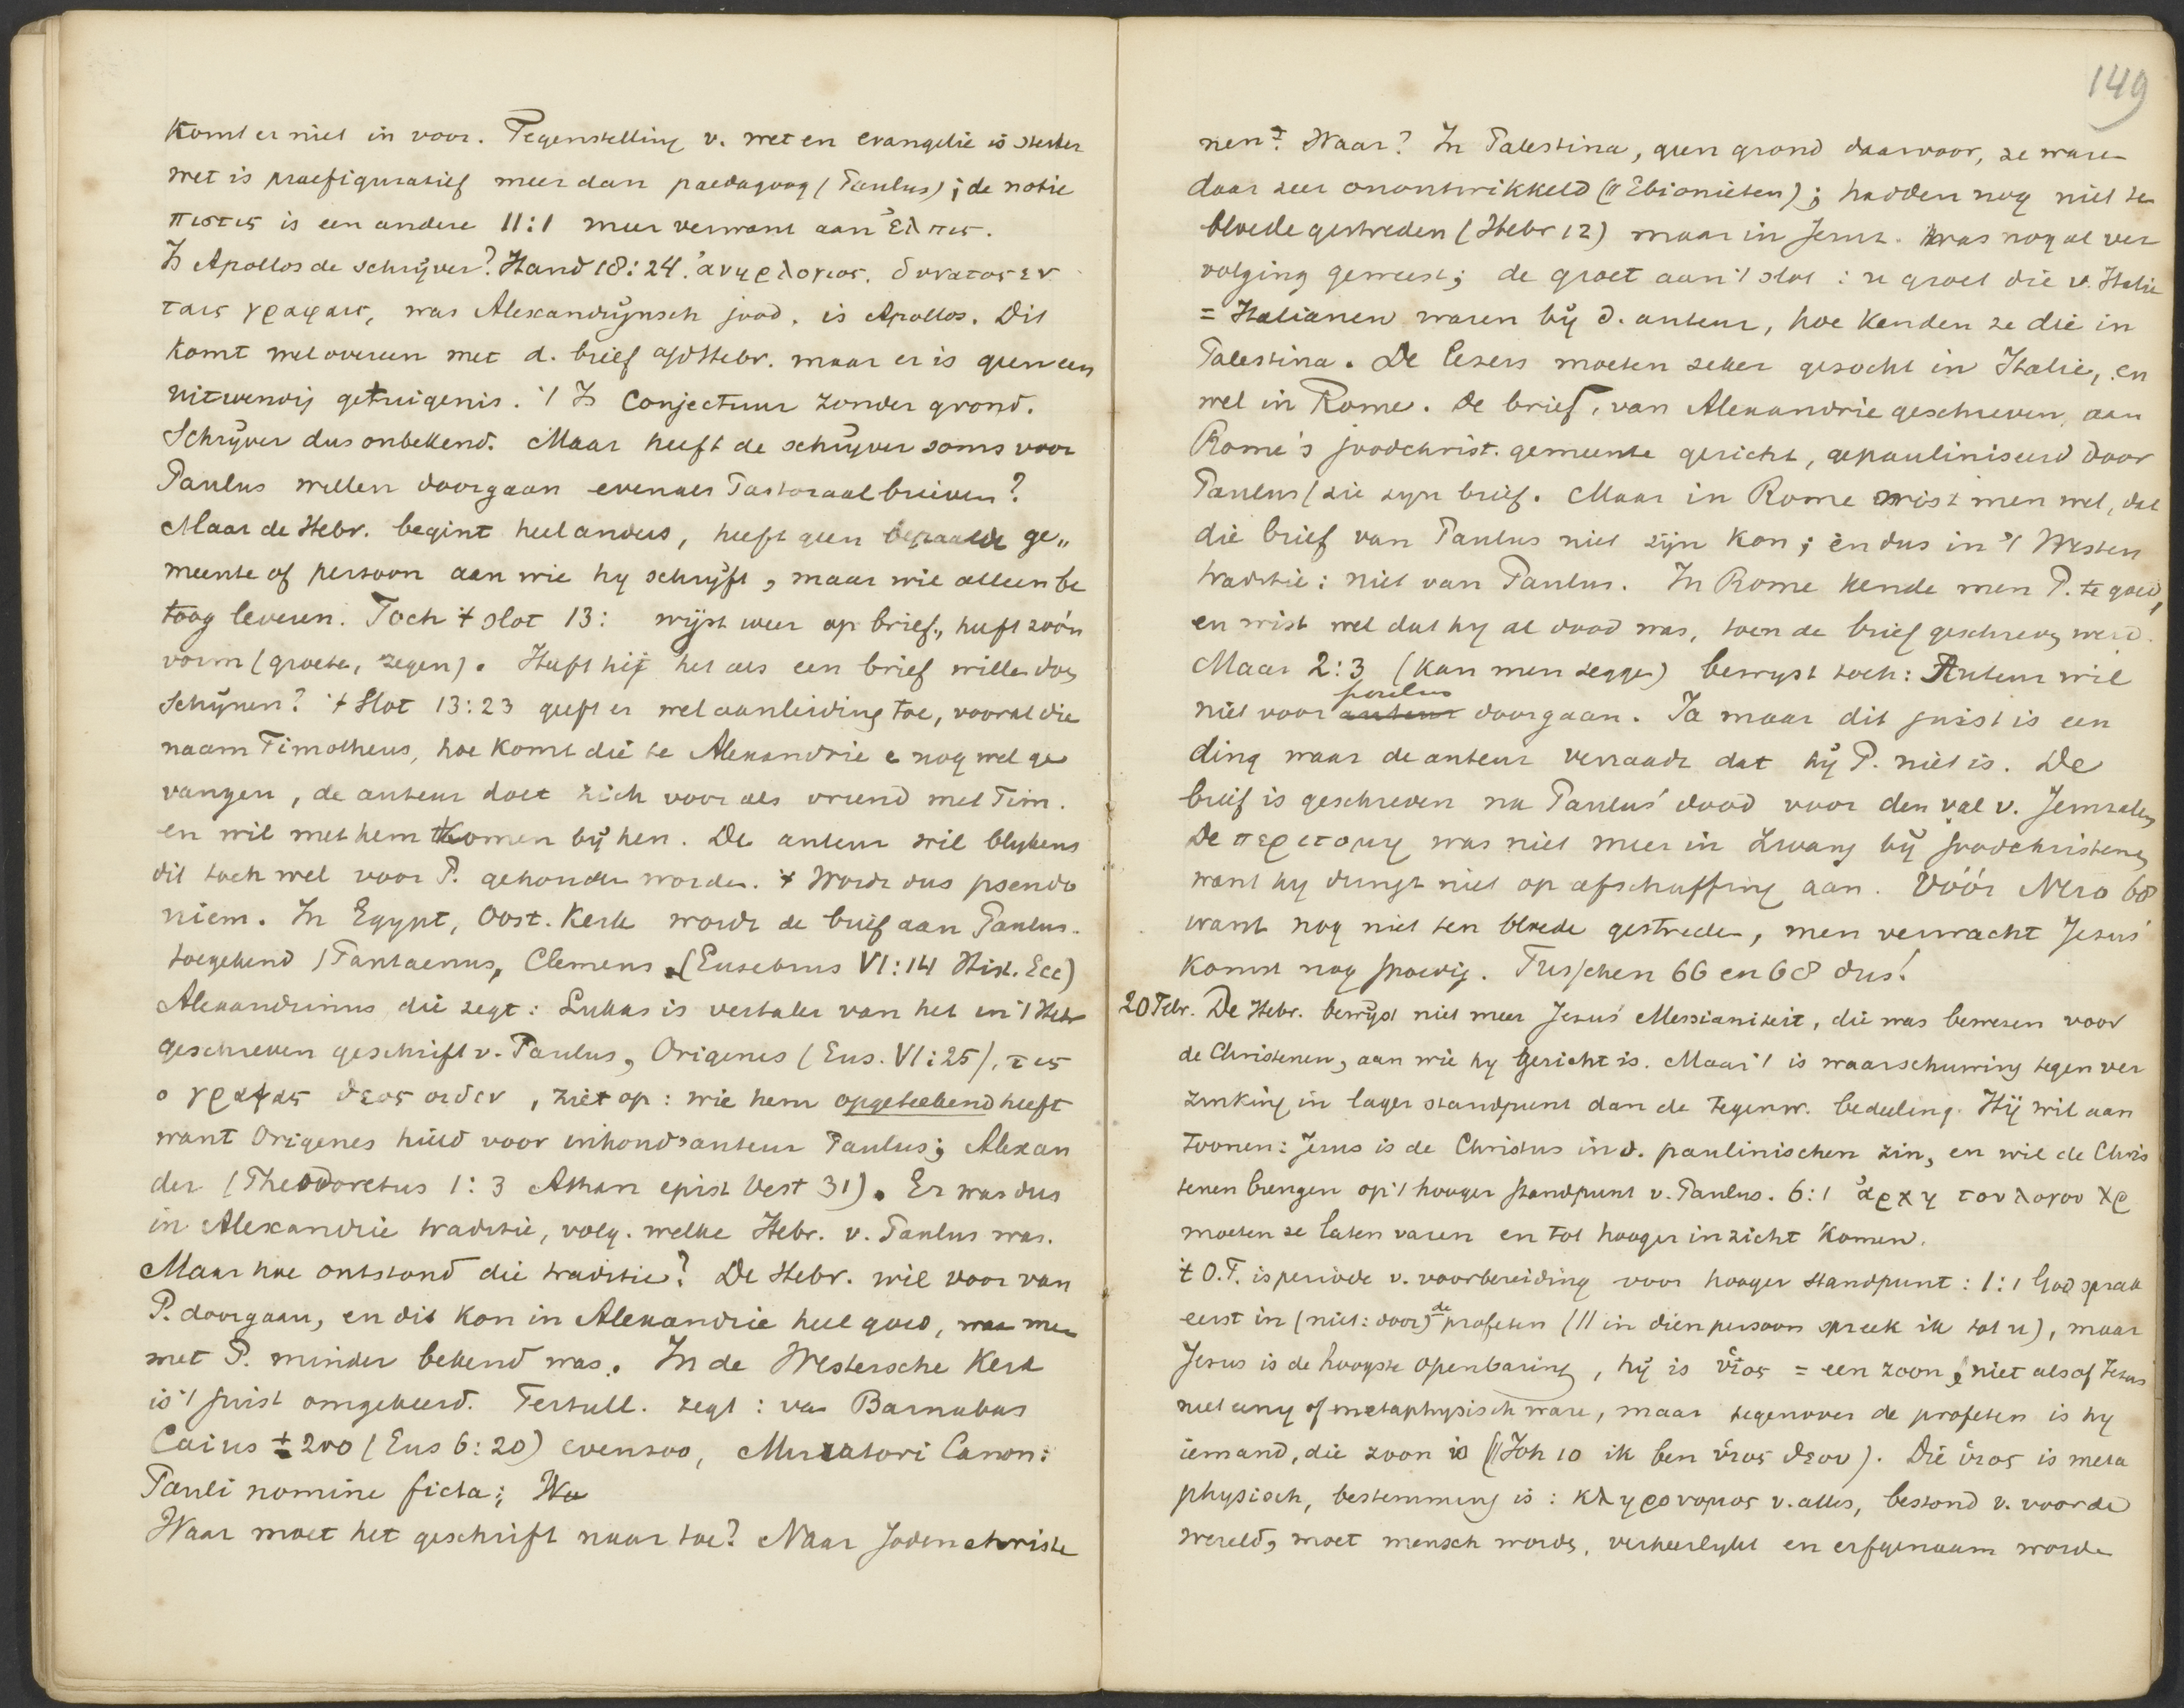 Komt er niet in voor. Tegenstelling v. wet en evangelie is sterker
wet is praefiguratief meer dan paedagoog (Paulus); de notie
πιστις is een andere 11:1 meer verwant aan ἐλπις.
Is Apollos de schrijver? Hand 18:24. ἀνηρ λογιος. δυνατος εν
ταις γραφαις, was Alexandrijnsch jood, is Apollos. Dit
komt wel overeen met d. brief a/d Hebr. maar er is geen een
uitwendig getuigenis. 't Is Conjectuur zonder grond.
Schrijver dus onbekend. Maar heeft de schrijver soms voor
Paulus willen doorgaan evenals Pastoraalbrieven?
Maar de Hebr. begint heel anders, heeft geen bepaalde ge„
meente of persoon aan wie hy schrijft, maar wil alleen be
toog leveren. Toch 't slot 13: wijst weer op brief, heeft zoo'n
vorm (groete, zegen). Heeft hij het als een brief wille doe
schijnen? 't Slot 13:23 geeft er wel aanleiding toe, vooral die
naam Timotheus, hoe komt die te Alexandrie e nog wel ge
vangen, de auteur doet zich voor als vriend met Tim.
en wil met hem komen bij hen. De auteur wil blykens
dit toch wel voor P. gehouden worden. 't Wordt dus pseudo
niem. In Egypt, Oost. Kerk wordt de brief aan Paulus
toegekend (Pantaenus, Clemens (Eusebius VI:14 Hist. Ecc)
Alexandrinus die zegt: Lukas is vertaler van het in 't Hebr
geschreven geschrift v. Paulus, Origenes (Eus. VI:25). τις
ο γραψας θεος οιδεν, ziet op: wie hem opgeteekend heeft
want Origenes hield voor inhoudsauteur Paulus; Alexan
der (Theodoretus 1:3 Athan epist vest 31). Er was dus
in Alexandrie traditie, volg. welke Hebr. v. Paulus was.
Maar hoe ontstond die traditie? De Hebr. wil voor van
P. doorgaan, en dit kon in Alexandrie heel goed, waar men
met P. minder bekend was. In de Westersche Kerk
is 't juist omgekeerd. Tertull. zegt: van Barnabas
Caius ± 200 (Eus 6:20) evenzoo, Muratori Canon:
Pauli nomine ficta; Wa
Waar moet het geschrift naar toe? Naar Jodenchriste
149
nen. Waar? In Palestina, geen grond daarvoor, ze waren
daar zeer onontwikkeld (// Ebionieten); hadden nog niet ten
bloede gestreden (Hebr 12) maar in Jeruz. was nog al ver
volging geweest; de groet aan 't slot: u groet die v. Italie
= Italianen waren bij d. auteur, hoe kenden ze die in
Palestina. De lezers moeten zeker gezocht in Italie, en
wel in Rome. De brief, van Alexandrie geschreven, aan
Rome's joodchrist. gemeente gericht, gepauliniseerd door
Paulus (zie zyn brief. Maar in Rome wist men wel, dat
die brief van Paulus niet zijn kon; en dus in 't Westen
traditie: niet van Paulus. In Rome kende men P. te goed,
en wist wel dat hy al dood was, toen de brief geschreven werd.
Maar 2:3 (kan men zegge) bewyst toch: Auteur wil
niet voor auteur paulus doorgaan. Ja maar dit juist is een
ding waar de auteur verraadt dat hij P. niet is. De
brief is geschreven na Paulus' dood voor den val v. Jeruzalem
De περιτομη was niet meer in zwang bij joodchristenen
want hy dringt niet op afschaffing aan. Vóór Nero 68
want nog niet ten bloede gestreden, men verwacht Jezus'
komst nog spoedig. Tusschen 66 en 68 dus!
20 Febr. De Hebr. bewijst niet meer Jesus' Messianiteit, die was bewezen voor
de Christenen, aan wie hy gericht is. Maar 't is waarschuwing tegen ver
zinking in lager standpunt dan de tegenw. bedeeling. Hij wil aan
toonen: Jesus is de Christus in d. paulinischen zin, en wil de Chris
tenen brengen op 't hooger standpunt v. Paulus. 6:1 ἀρχη του λογου Χρ
moeten ze laten varen en tot hooger inzicht komen.
't O.T. is periode v. voorbereiding voor hooger standpunt: 1:1 God sprak
eerst in (niet: door) de profeten (// in dien persoon spreek ik tot u), maar
Jesus is de hoogste openbaring, hij is υἱος = een zoon, niet alsof Jezus
niet enig of metaphysisch ware, maar tegenover de profeten is hy
iemand, die zoon is (// Joh 10 ik ben υἱος θεου). Die υἱος is meta
physisch, bestemming is: κληρονομος v. alles, bestond v. voor de
wereld, moet mensch worde, verheerlykt en erfgenaam worde